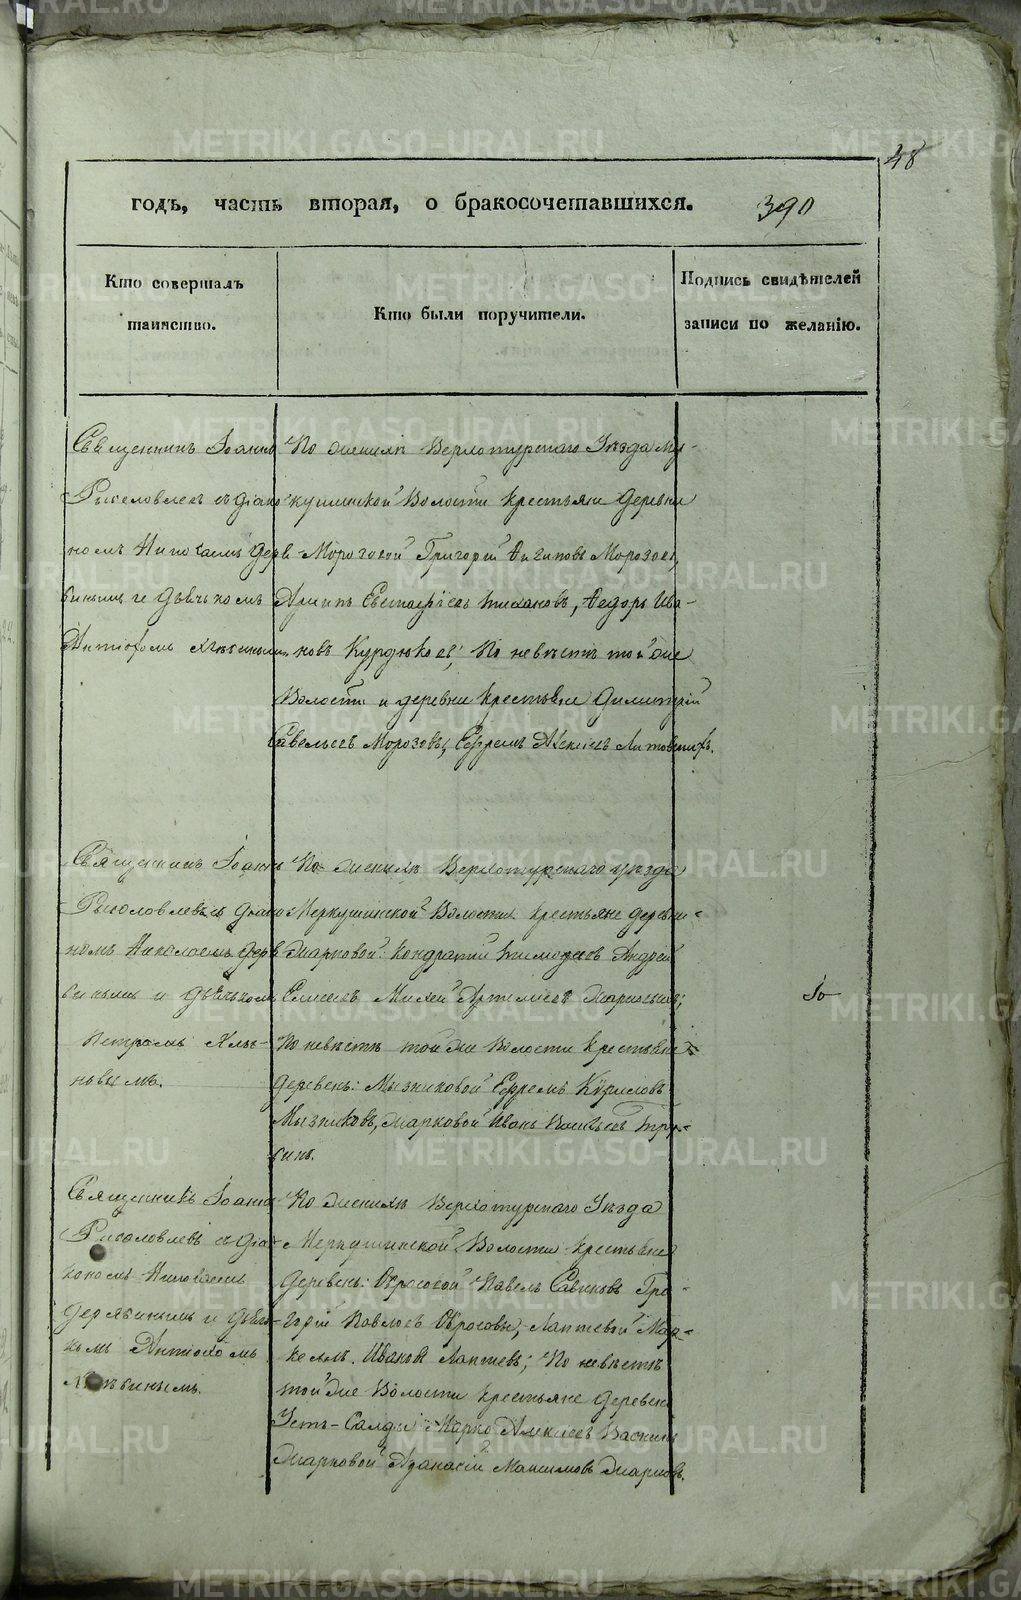 48
годъ, часть вторая, о бракосочетавшихся. 390
Кто совершалъ таинство.
Кто были поручители.
Подпись свидѣтелей записи по желанію.
Священникъ Іоаннъ
Рысоловлевъ съ діако
номъ Николаемъ Деря
бинымъ и дьячкомъ
Антіохомъ
По женихѣ Верхотурскаго Уѣзда Мер-
кушинской Волости крестьяне деревни
Морозовой Григорій Филиповъ Морозовъ,
Архипъ Евстафіевъ Тихановъ, Федоръ Ива-
новъ Курдюковъ; По невѣстѣ той же
Волости и деревни крестьяне Димитрій
Савельевъ Морозовъ, Ефремъ Алексіевъ
Священникъ Іоаннъ
Рысоловлевъ съ діако
номъ Николаемъ Деря
бинымъ и дьячкомъ
Петромъ Хлѣ-
новымъ.
По женихѣ Верхотурскаго уѣзда
Меркушинской Волости крестьяне деревни
Марковой: Кондратій Тимофеевъ Андрей
Елисеевъ Михей Артемьевъ Марковы;
По невѣстѣ той же Волости крестьяне
деревень: Мызниковой Ефремъ Кириловъ
Мызниковъ, Марковой Иванъ Васильевъ Тру-
бинъ.
Священникъ Іоаннъ
Рысоловлевъ съ діа-
кономъ Николаемъ
Дерябинымъ и дьяч-
комъ Антіохомъ
По женихѣ Верхотурскаго Уѣзда
Меркушинской Волости крестьяне
деревень: Обросовой Павелъ Савиновъ Гри-
горій Павловъ Обросовы, Лаптевой Мар-
келлъ Ивановъ Лаптевъ; По невѣстѣ
той же Волости крестьяне деревень
Усть-Салды: Марко Алексіевъ
Марковой Афанасій Максимовъ Марковъ.